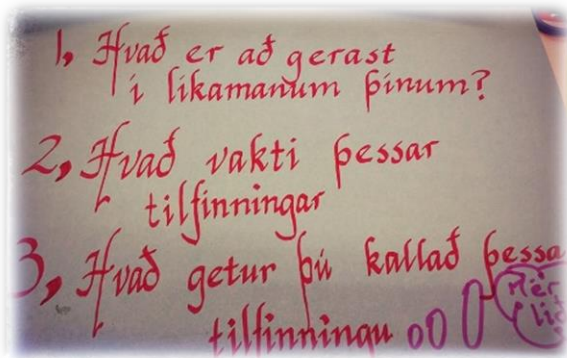 1, Hvað er að gerast
í líkamanum þínum?
2, Hvað vakti þessar
tilfinningar
3, Hvað getur þú kallað þessa
tilfinningu
Mér
líð